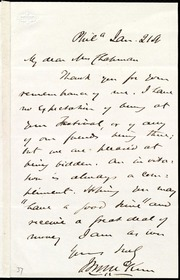 Phila Jan. 21st
My dear Mrs Chapman
Thank you for your
remembrance of me. I have
no expectation of being at
your Festival, or of any
of our friends being there;
but we are pleased at
being bidden. An invita-
tion is always a com-
pliment. Hoping you may
"have a good time" and
receive a great deal of
money I am as ever
Yours truly
J M McKim